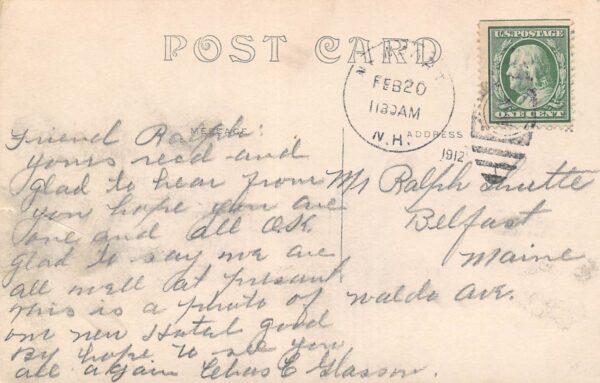 POST CARD
U.S. POSTAGE
ONE CENT
FEB 20
1130AM
N.H.
1912
MESSAGE
ADDRESS
Friend Ralph:
yours recd and
glad to hear from
you hope you are
one and all O.K.
glad to say we are
all well at present
this is a photo of
our new Hotel good
By hope to see you
all again Chas E Glasson.
Mr Ralph
Belfast
Maine
Waldo Ave.